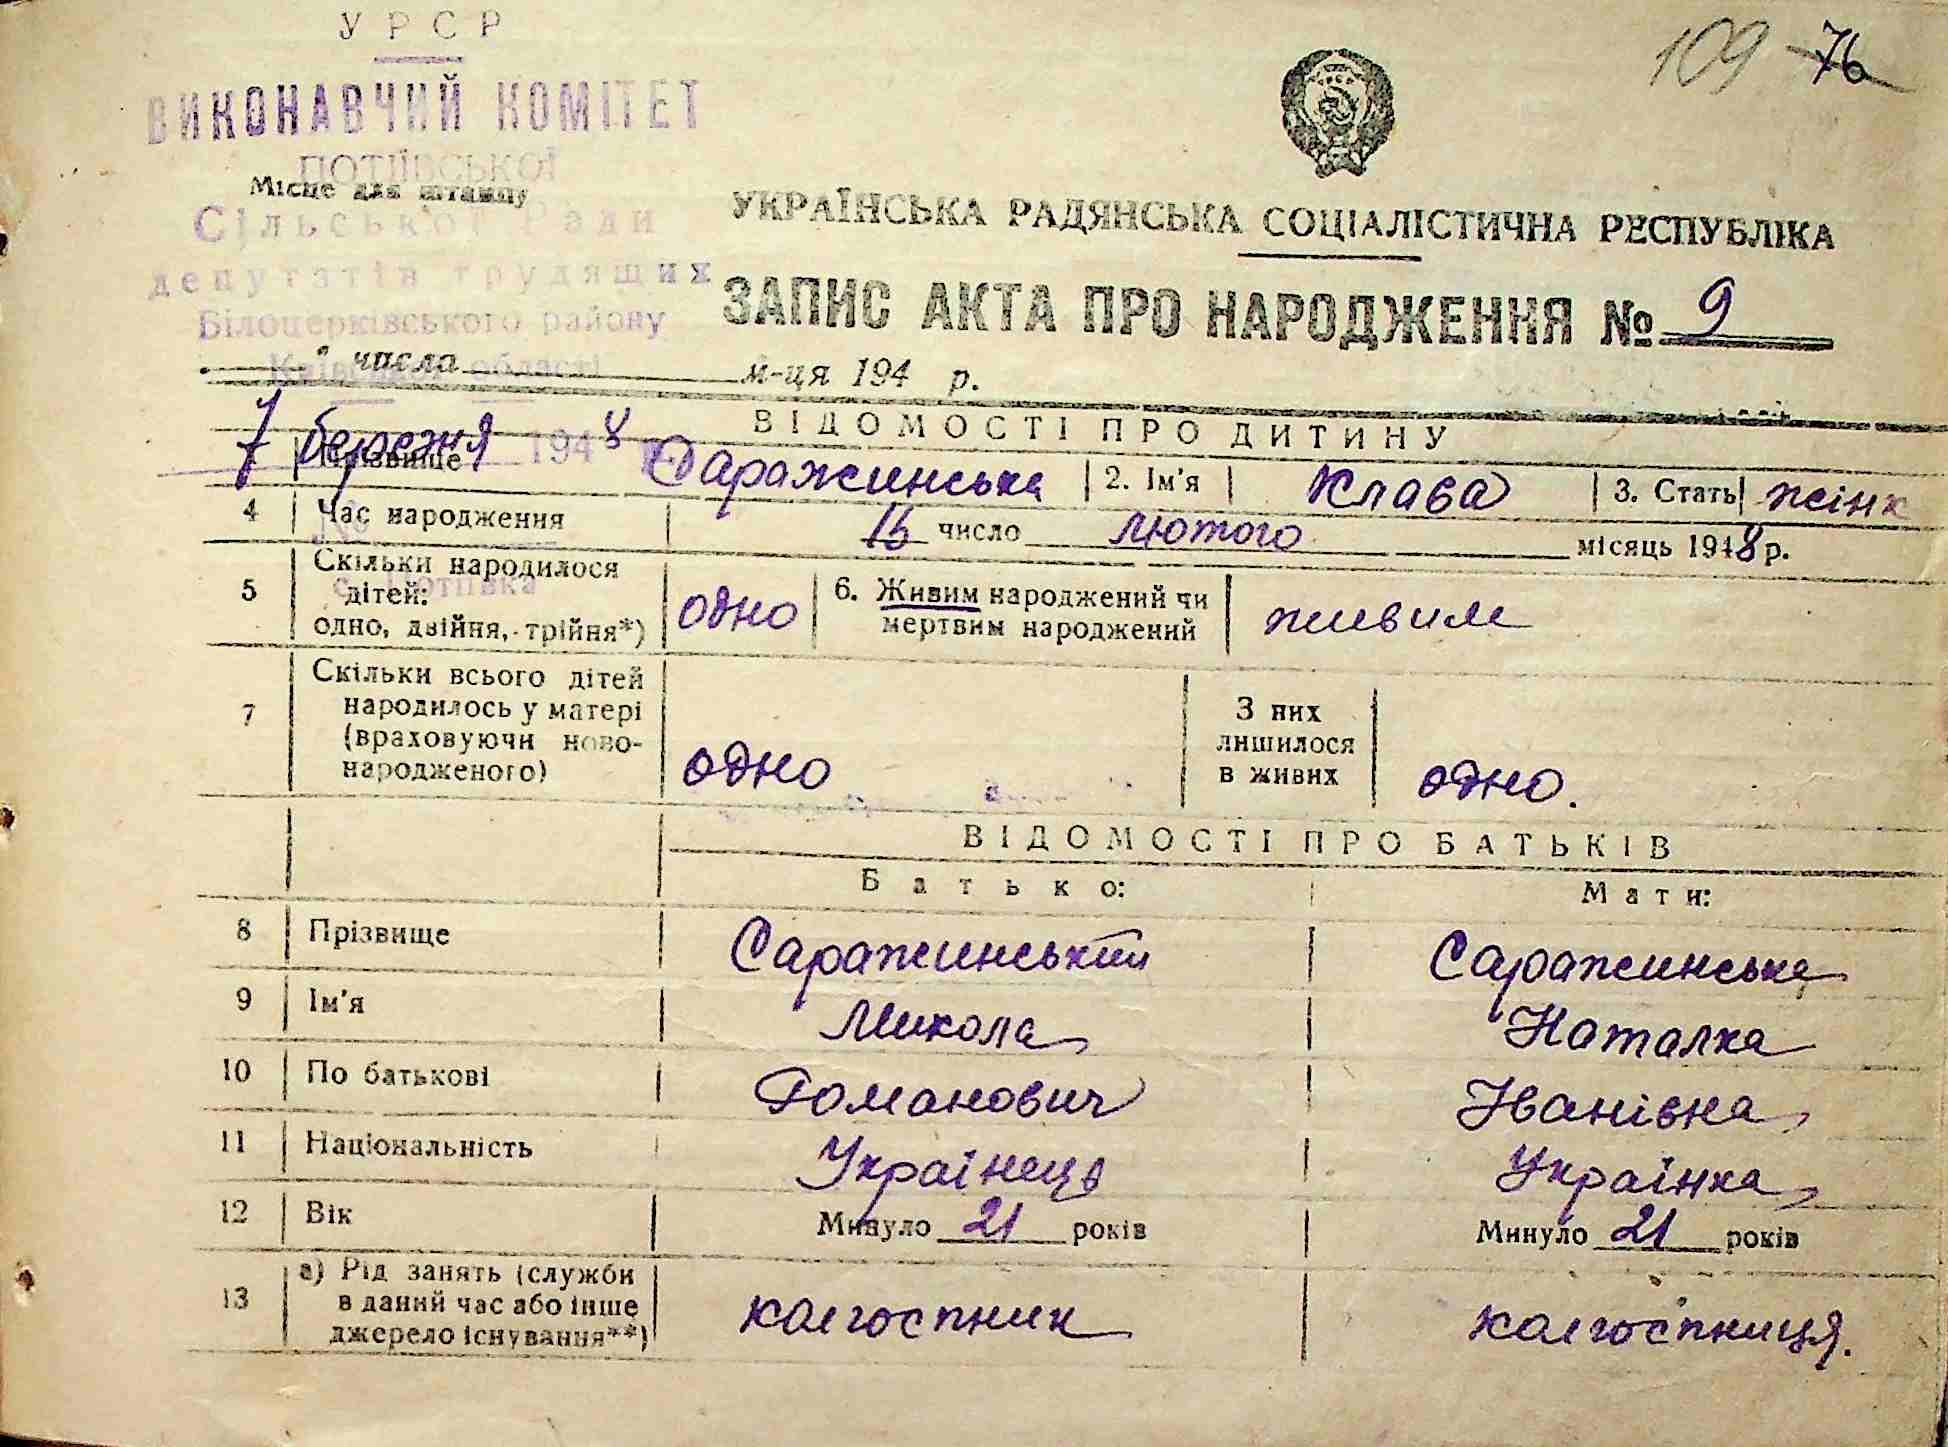 109 76
УРСР
ВИКОНАВЧИЙ КОМІТЕТ
ПОТІЇВСЬКОЇ
Місце для штампу
Сільської Ради
депутатів трудящих
Білоцерківського району
Київської області
УКРАЇНСЬКА РАДЯНСЬКА СОЦІАЛІСТИЧНА РЕСПУБЛІКА
ЗАПИС АКТА ПРО НАРОДЖЕННЯ № 9
" числа м-ця 194 р.
7 березня 1948
ВІДОМОСТІ ПРО ДИТИНУ
Прізвище Саражинська 2. Ім'я Клава 3. Стать жінк
4 Час народження 15 число лютого місяць 1948 р.
№
с. Потіївка
5 Скільки народилося дітей: одно, двійня, трійня*) одно 6. Живим народжений чи мертвим народжений живим
7 Скільки всього дітей народилось у матері (враховуючи ново-народженого) одно З них лишилося в живих одно.
ВІДОМОСТІ ПРО БАТЬКІВ
Батько: Мати:
8 Прізвище Саражинський Саражинська
9 Ім'я Микола Наталка
10 По батькові Романович Іванівна
11 Національність Українець Українка
12 Вік Минуло 21 років Минуло 21 років
13 а) Рід занять (служби в даний час або інше джерело існування**) колгоспник колгоспниця.